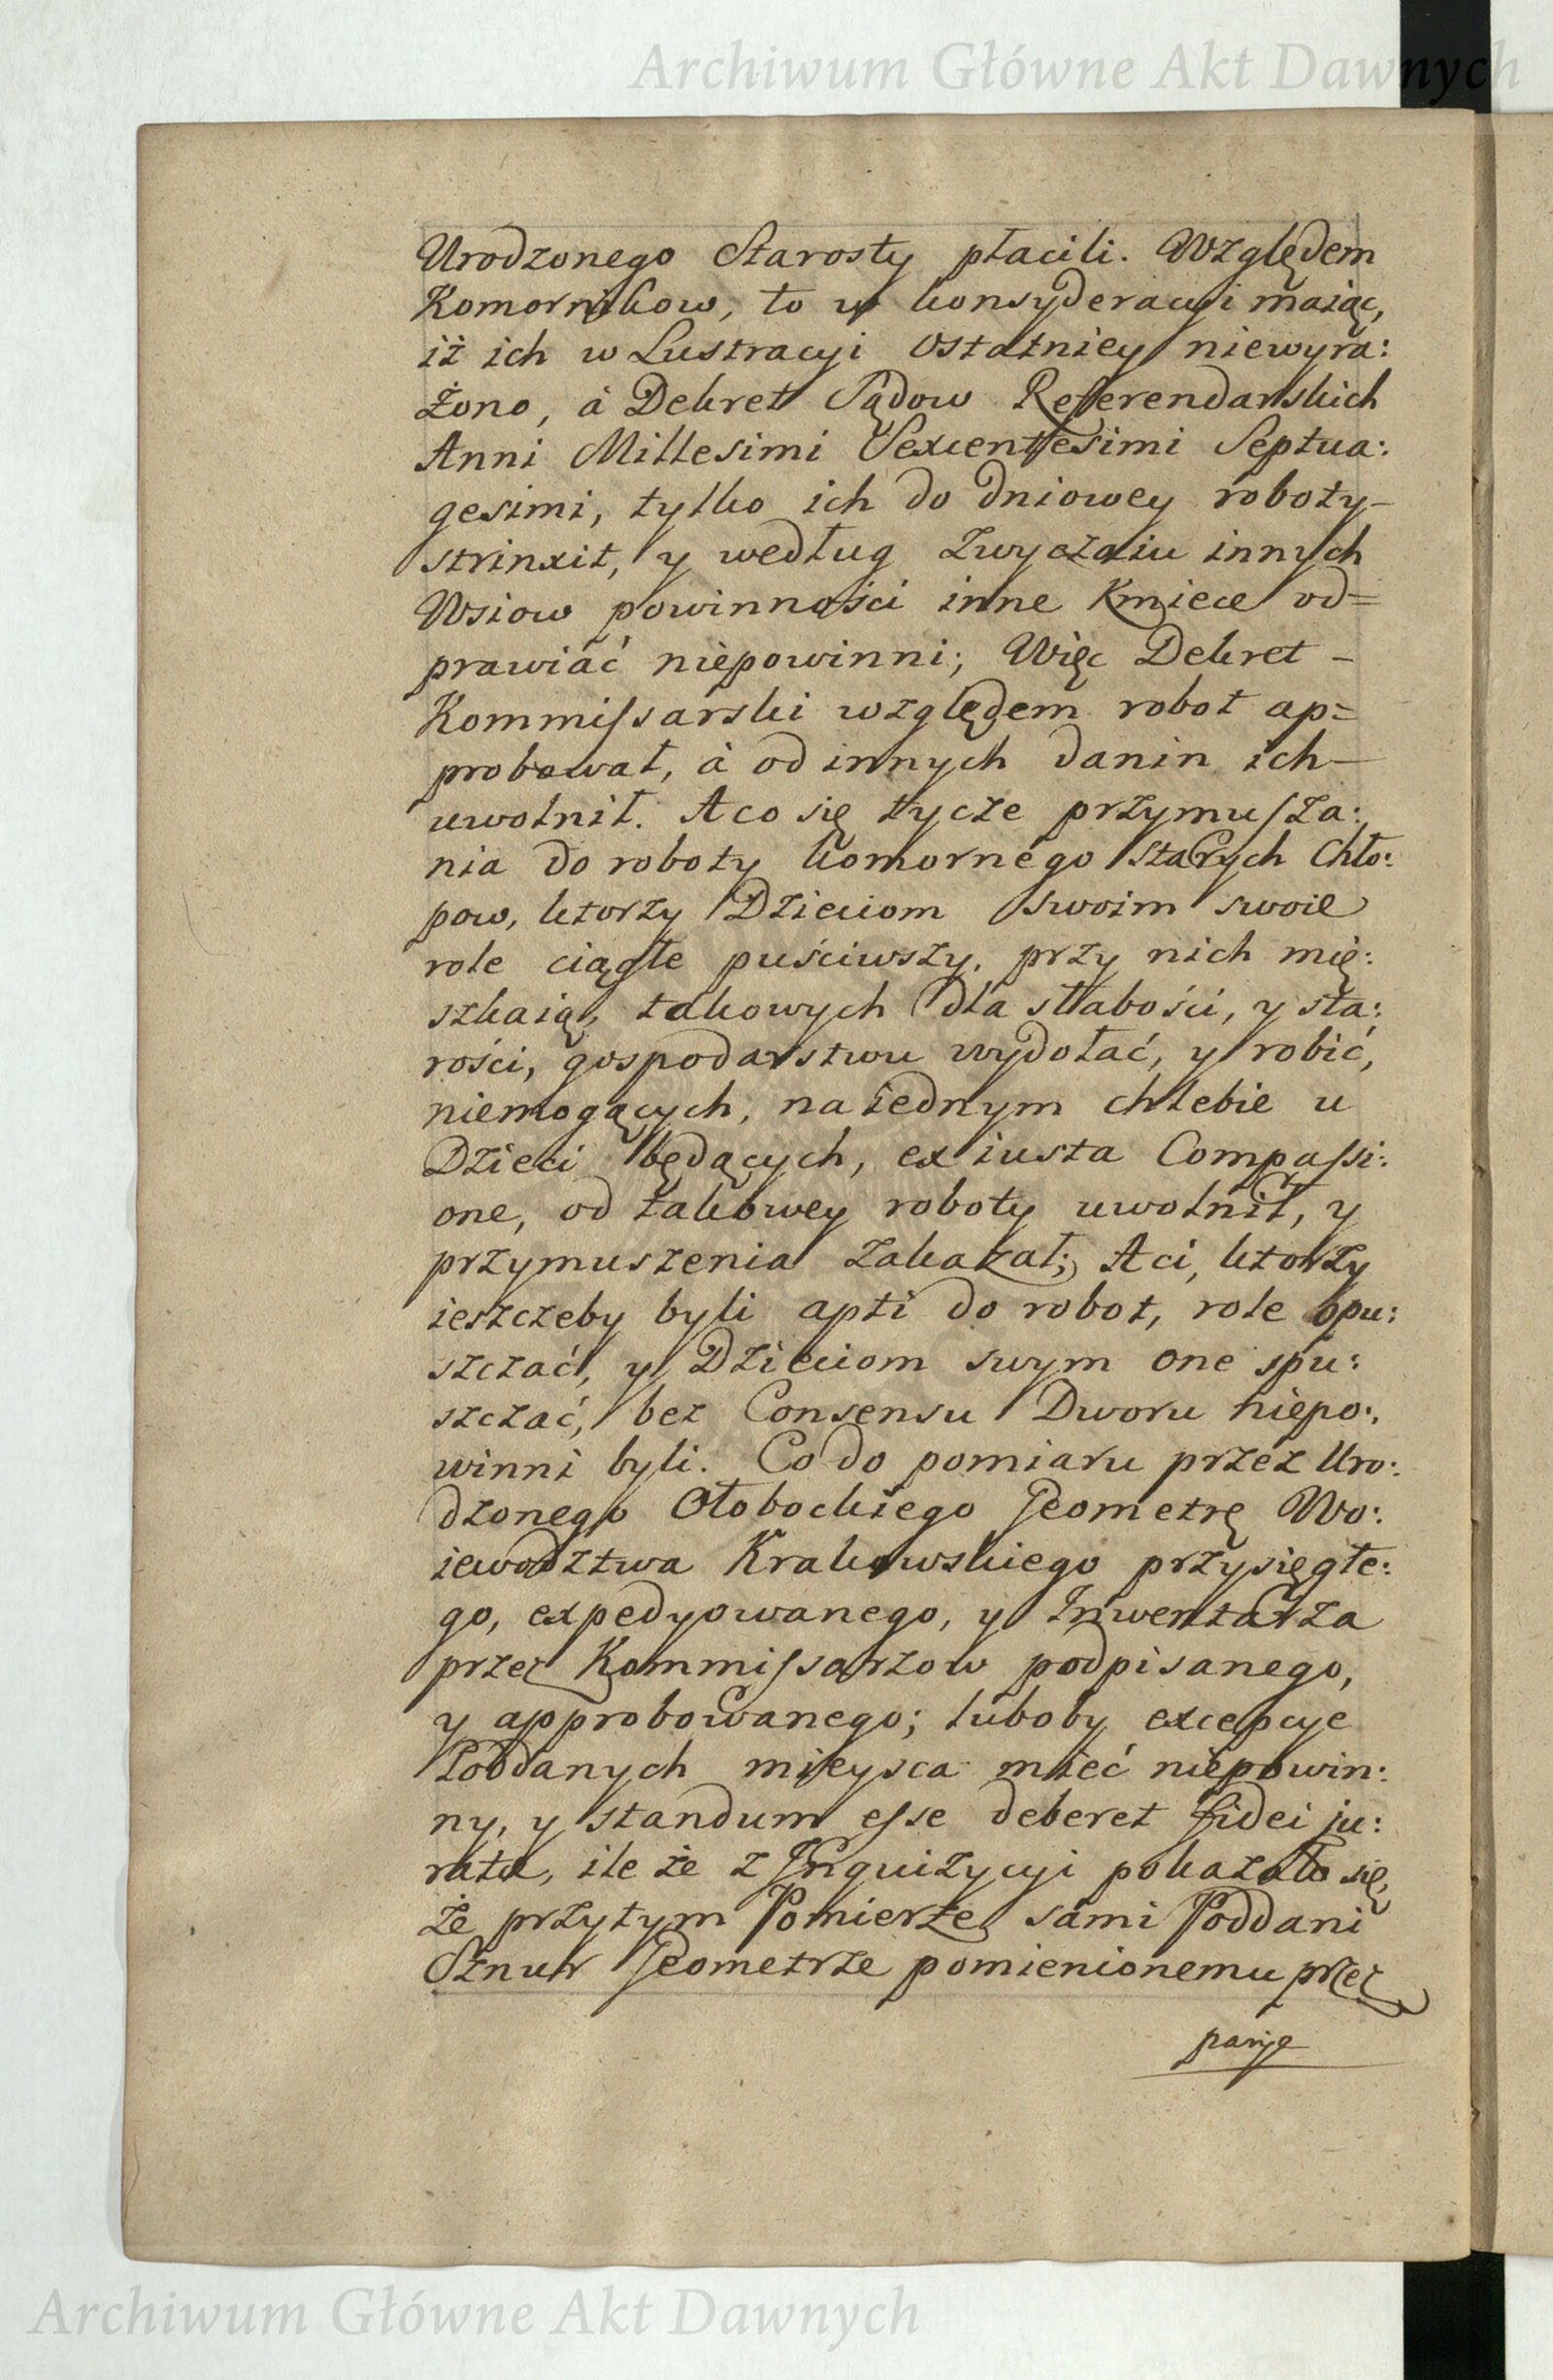 Archiwum Główne Akt Dawnych
Urodzonego Starosty płacili. Względem
Komornikow, to w konsyderacyi maiąc,
iż ich w Lustracyi ostatniey niewyra:
żono, à Dekret Sądow Referendarskich
Anni Millesimi Sexcentesimi Septua:
gesimi, tylko ich do dniowey roboty-
strinxit, y według zwyczaiu innych
Wsiow powinności inne Kmiece od=
prawiać niepowinni; Więc Dekret -
Kommissarski względem robot ap=
probował, à od innych danin ich-
uwolnił. A co się tycze przymusza:
nia do roboty komornego starych Chło:
pow, ktorzy Dzieciom swoim swoie
role ciągłe puściwszy, przy nich mię:
szkaią, takowych dla słabości, y sta:
rości, gospodarstwu wydołać, y robić,
niemogących, na iednym chlebie u
Dzieci będących, ex iusta Compassi:
one, od takowey roboty uwolnił, y
przymuszenia zakazał; A ci, ktorzy
ieszczeby byli apti do robot, role opu:
szczać, y Dzieciom swym one spu:
szczać, bez Consensu Dworu niepo:
winni byli. Co do pomiaru przez Uro:
dzonego Ołobockiego Jeometrę Wo:
iewodztwa Krakowskiego przysięgłe:
go, expedyowanego, y Inwentarza
przez Kommissarzow podpisanego,
y approbowanego; luboby excepcye
Poddanych mieysca mieć niepowin:
ny, y standum esse deberet fidei ju:
ratæ, ile że z Inquizycyi pokazało się,
że przytym Pomierze sami Poddani
Sznur Jeometrze pomienionemu przez
parę
Archiwum Główne Akt Dawnych